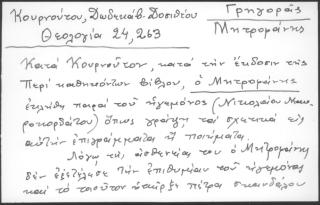 Κουρνούτου, Δωδεκάβ. Δοσιθέου
Θεολογία 24, 263
Γρηγοράς
Μητρομάνης
Κατά Κουρνοῦτον, κατά τήν ἔκδοσιν τῆς
Περί καθηκόντων βίβλου, ὁ Μητρομάνης
ἐκλήθη παρά τοῦ ἡγεμόνος (Νικολάου Μαυ-
ροκορδάτου) ὅπως γράψῃ τά σχετικά εἰς
αὐτήν ἐπιγράμματα ἤ ποιήματα.
Λόγῳ τῆς ἀσθενείας του ὁ Μητρομάνης
δέν ἐξετέλεσε τήν ἐπιθυμίαν τοῦ ἡγεμόνος
καί τό τοιοῦτον ὑπῆρξε πέτρα σκανδάλου